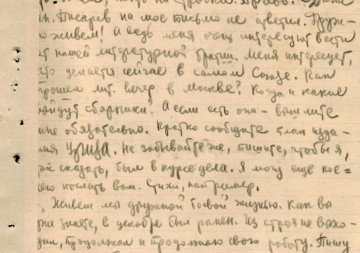 Писарев на мое письмо не ответил. Друж-
но живем! А ведь меня очень интересуют вести
нашей литературной братии. Меня интересует,
что делается сейчас в самом Союзе. Как
прошел лит. вечер в Москве? Когда и какие
выйдут сборники? А если есть они - вышлите
мне обязательно. Кратко сообщите план изда-
ния УзИЦа. Не забывайте же, пишите, чтобы я,
так сказать, был в курсе дела. Я могу еще кое-
что послать вам. Стихи, например.
Живем мы дружной боевой жизнью. Как вы
уже знаете, в декабре был ранен. Из строя не выхо-
дил, продолжал и продолжаю свою работу. Пишу